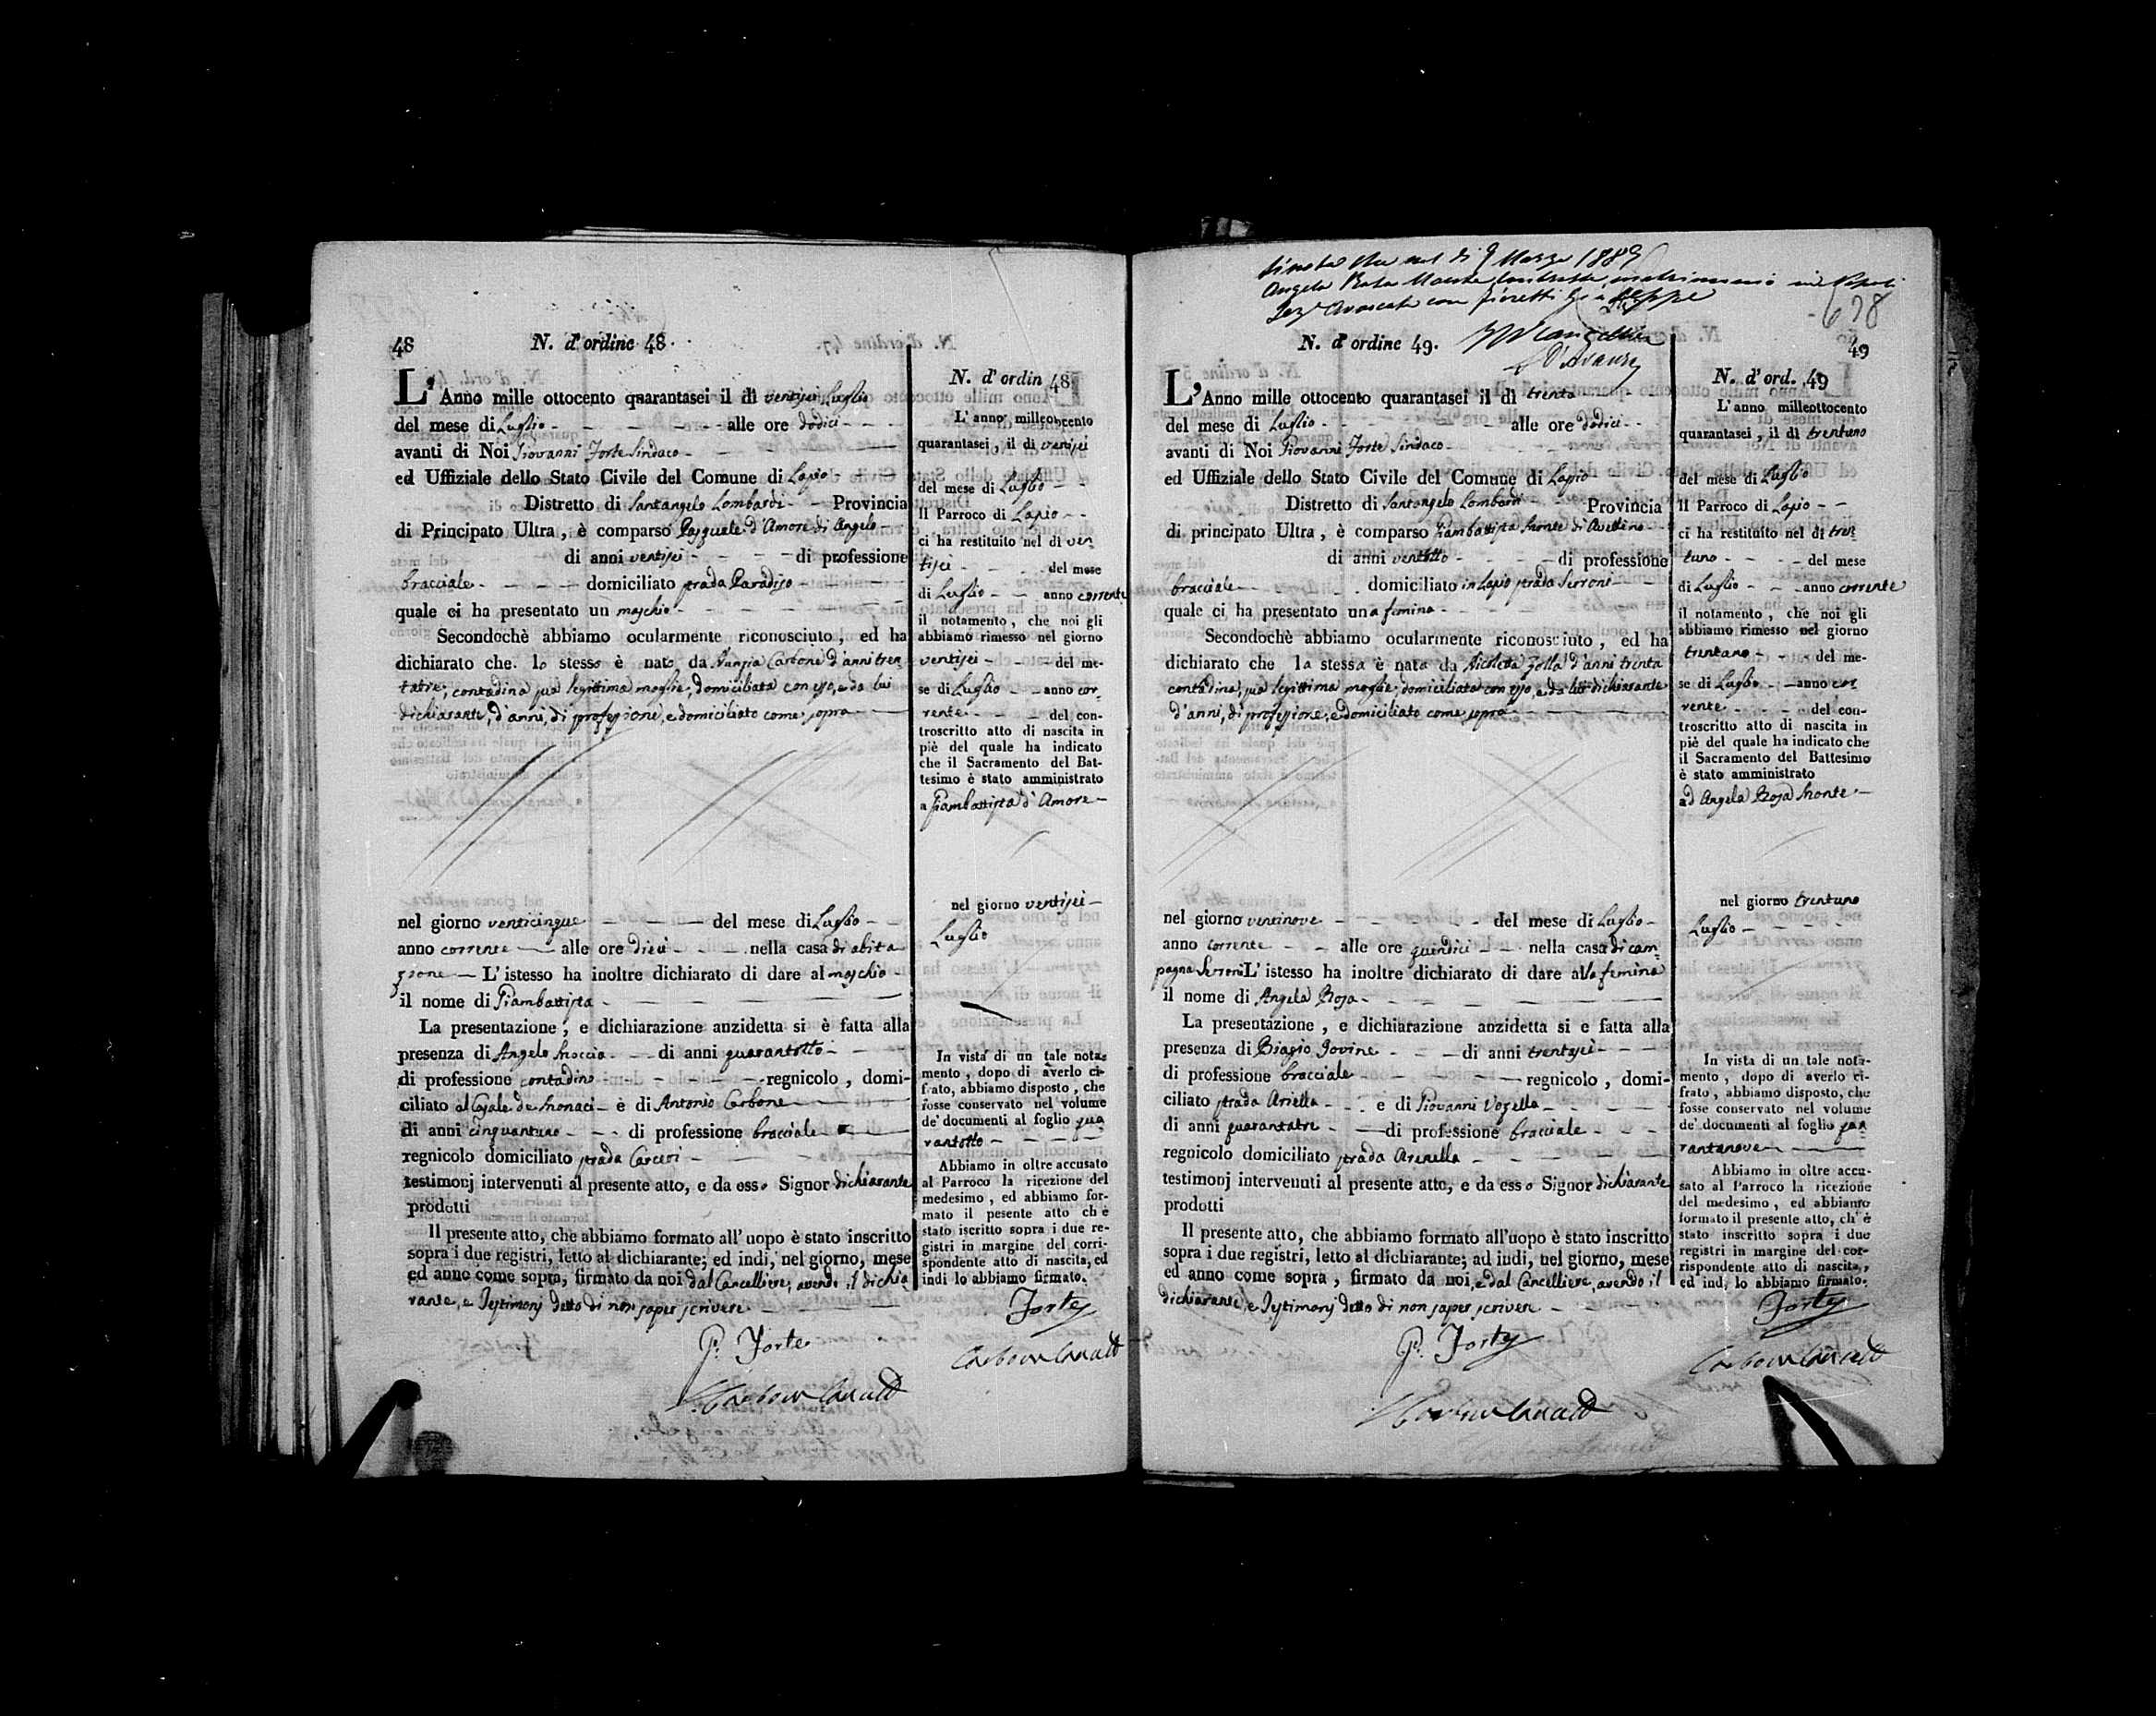 48
N. d'ordine 48.
L'Anno mille ottocento quarantasei il dì ventisei Luglio
del mese di Luglio - alle ore dodici
avanti di Noi Giovanni Forte Sindaco
ed Uffiziale dello Stato Civile del Comune di Lapio
Distretto di Santangelo Lombardi - Provincia
di Principato Ultra, è comparso Pasquale d'Amore di Angelo
di anni ventisei - di professione
bracciale - domiciliato strada Paradiso
quale ci ha presentato un maschio
Secondochè abbiamo ocularmente riconosciuto, ed ha
dichiarato che lo stesso è nato da Nunzia Carbone d'anni tren
tatre, contadina sua legittima moglie, domiciliata con esso, e da lui
dichiarante, d'anni, di professione, e domiciliato come sopra
nel giorno venticinque - del mese di Luglio
anno corrente - alle ore dieci - nella casa di abita
zione - L'istesso ha inoltre dichiarato di dare al maschio
il nome di Giambattista
La presentazione, e dichiarazione anzidetta si è fatta alla
presenza di Angelo - di anni quarantotto
di professione contadino - regnicolo, domi-
ciliato al Casale de Monaci - e di Antonio Carbone
di anni cinquantuno - di professione bracciale
regnicolo domiciliato strada Carceri
testimonj intervenuti al presente atto, e da esso Signor dichiarante
prodotti
Il presente atto, che abbiamo formato all'uopo è stato inscritto
sopra i due registri, letto al dichiarante; ed indi, nel giorno, mese
ed anno come sopra, firmato da noi dal Cancelliere, avendo il dichia
rante, e Testimonj detto di non saper scrivere
G. Forte
N. d'ordin 48
L'anno milleottocento
quarantasei, il di ventisei
del mese di Luglio
Il Parroco di Lapio
ci ha restituito nel di ven
tisei - del mese
di Luglio - anno corrente
il notamento, che noi gli
abbiamo rimesso nel giorno
ventisei - del me-
se di Luglio - anno cor
rente - del con-
troscritto atto di nascita in
piè del quale ha indicato
che il Sacramento del Bat-
tesimo è stato amministrato
a Giambattista d'Amore
nel giorno ventisei
Luglio
In vista di un tale nota-
mento, dopo di averlo ci-
frato, abbiamo disposto, che
fosse conservato nel volume
de' documenti al foglio qua
rantotto
Abbiamo in oltre accusato
al Parroco la ricezione del
medesimo, ed abbiamo for-
mato il pesente atto ch è
stato iscritto sopra i due re-
gistri in margine del corri-
spondente atto di nascita, ed
indi lo abbiamo firmato.
Forte
Si nota che nel di 9 Marzo 1889
Angela Rosa Monte contratto matrimonio in Napoli
Sez. Avvocata con Fioretti Giuseppe
678
49
N. d'ordine 49.
L'Anno mille ottocento quarantasei il dì trenta
del mese di Luglio - alle ore dodici
avanti di Noi Giovanni Forte Sindaco
ed Uffiziale dello Stato Civile del Comune di Lapio
Distretto di Santangelo Lombardi Provincia
di principato Ultra, è comparso Giambattista Monte di Avellino
di anni ventotto - di professione
bracciale - domiciliato in Lapio strada Serroni
quale ci ha presentato una femina
Secondochè abbiamo ocularmente riconosciuto, ed ha
dichiarato che la stessa è nata da Nicoletta Zolla d'anni trenta
contadina, sua legittima moglie, domiciliata con esso, e da lui dichiarante
d'anni, di professione, e domiciliato come sopra
nel giorno ventinove - del mese di Luglio
anno corrente - alle ore quindici - nella casa di cam-
pagna Serroni L'istesso ha inoltre dichiarato di dare alla femina
il nome di Angela Rosa
La presentazione, e dichiarazione anzidetta si e fatta alla
presenza di Biagio Iovine - di anni trentasei
di professione bracciale - regnicolo, domi-
ciliato strada Ariella - e di Giovanni Vozella
di anni quarantatre - di professione bracciale
regnicolo domiciliato strada Arenella
testimonj intervenuti al presente atto, e da esso Signor dichiarante
prodotti
Il presente atto, che abbiamo formato all'uopo è stato inscritto
sopra i due registri, letto al dichiarante; ad iudi, nel giorno, mese
ed anno come sopra, firmato da noi, e dal Cancelliere, avendo il
dichiarante, e Testimonj detto di non saper scrivere
G. Forte
N. d'ord. 49
L'anno milleottocento
quarantasei, il dì trentuno
del mese di Luglio
Il Parroco di Lapio
ci ha restituito nel dì tren
tuno - del mese
di Luglio - anno corrente
il notamento, che noi gli
abbiamo rimesso nel giorno
trentuno - del me-
se di Luglio - anno cor
rente - del con-
troscritto atto di nascita in
piè del quale ha indicato che
il Sacramento del Battesimo
è stato amministrato
ad Angela Rosa Monte
nel giorno trentuno
Luglio
In vista di un tale nota-
mento, dopo di averlo ci-
frato, abbiamo disposto, che
fosse conservato nel volume
de' documenti al foglio qua
rantanove
Abbiamo in oltre accu-
sato al Parroco la ricezione
del medesimo, ed abbiamo
formato il presente atto, ch'è
stato inscritto sopra i due
registri in margine del cor-
rispondente atto di nascita,
ed indi lo abbiamo firmato.
Forte